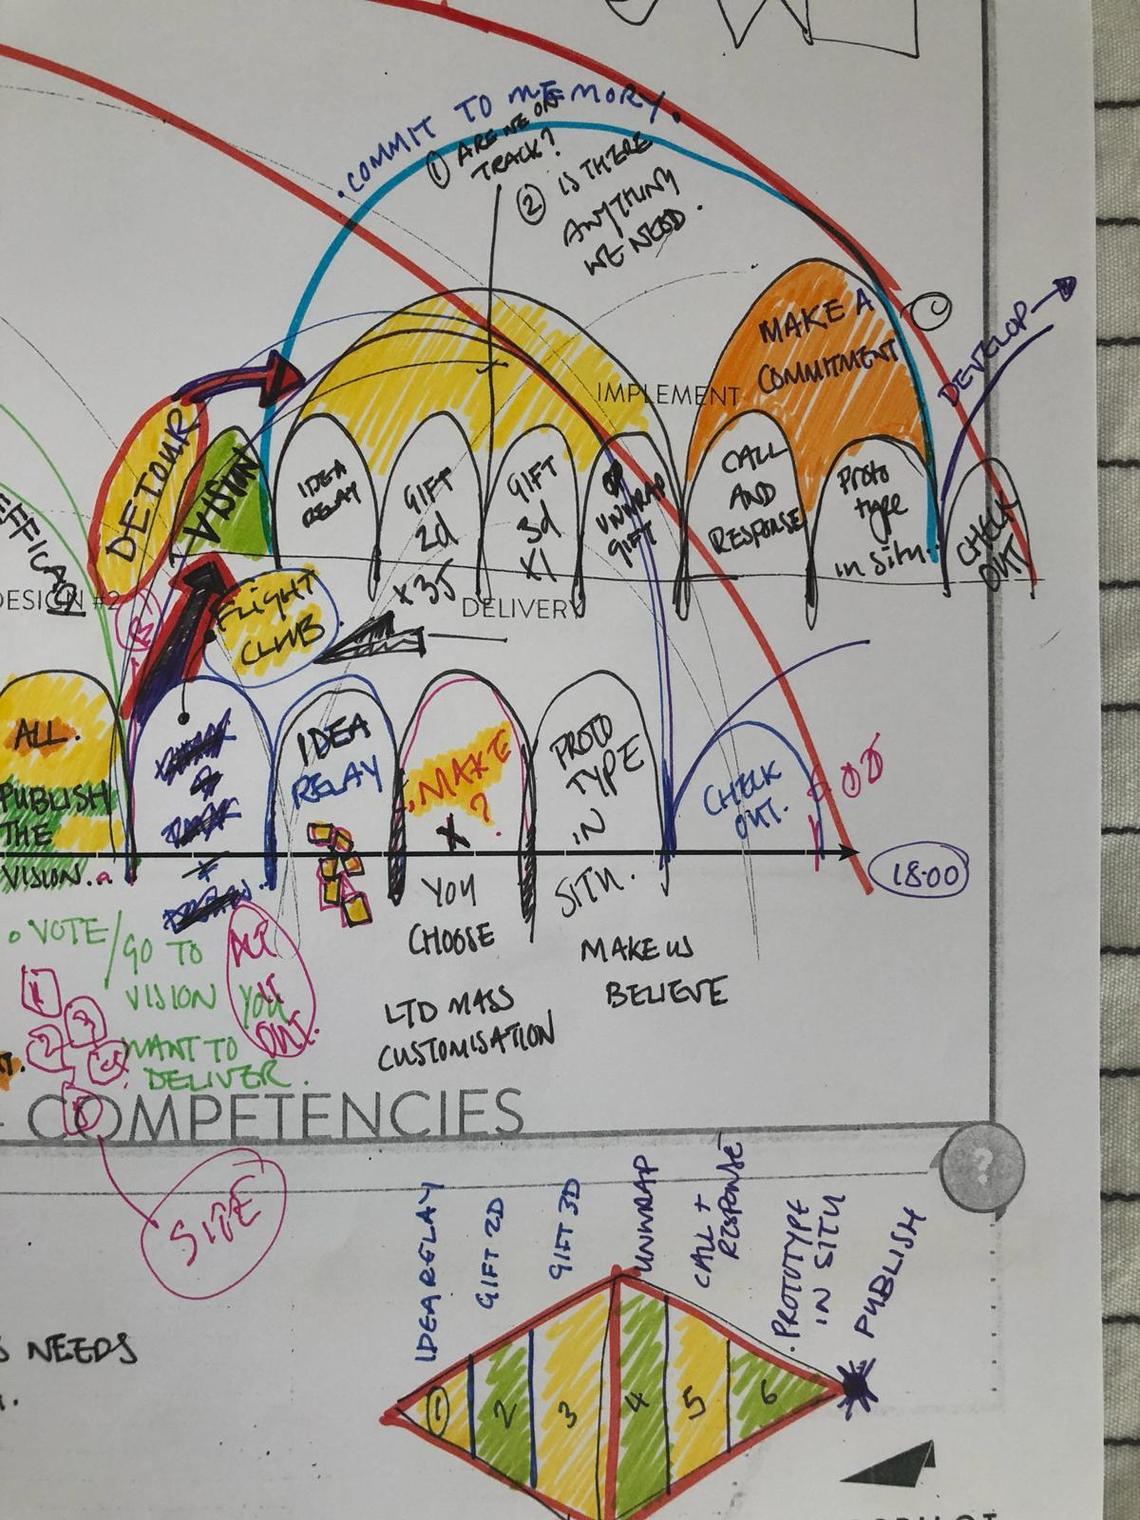 . COMMIT TO MEMORY .
① ARE WE ON
TRACK?
② IS THERE
ANYTHING
WE NEED .
MAKE A
COMMITMENT
DEVELOP
IMPLEMENT
DETOUR
VISION
IDEA
RELAY
GIFT
2d
X35
GIFT
3d
X1
UNWRAP
GIFT
CALL
AND
RESPONSE
Proto
type
in situ.
CHECK
OUT
DESIGN #2
DELIVERY
FLIGHT
CLUB.
ALL.
PUBLISH
THE
VISION.
IDEA
RELAY
MAKE
?
X
PROTO
TYPE
IN
SITU.
CHECK
OUT.
18:00
YOU
CHOOSE
LTD MASS
CUSTOMISATION
MAKE US
BELIEVE
o VOTE / GO TO
VISION YOU
WANT TO
DELIVER .
ACT
IT
OUT.
1
2
3
COMPETENCIES
?
SITE
NEEDS
IDEA RELAY
GIFT 2D
GIFT 3D
UNWRAP
CALL +
RESPONSE
. PROTOTYPE
IN SITU
PUBLISH
① 2 3 4 5 6